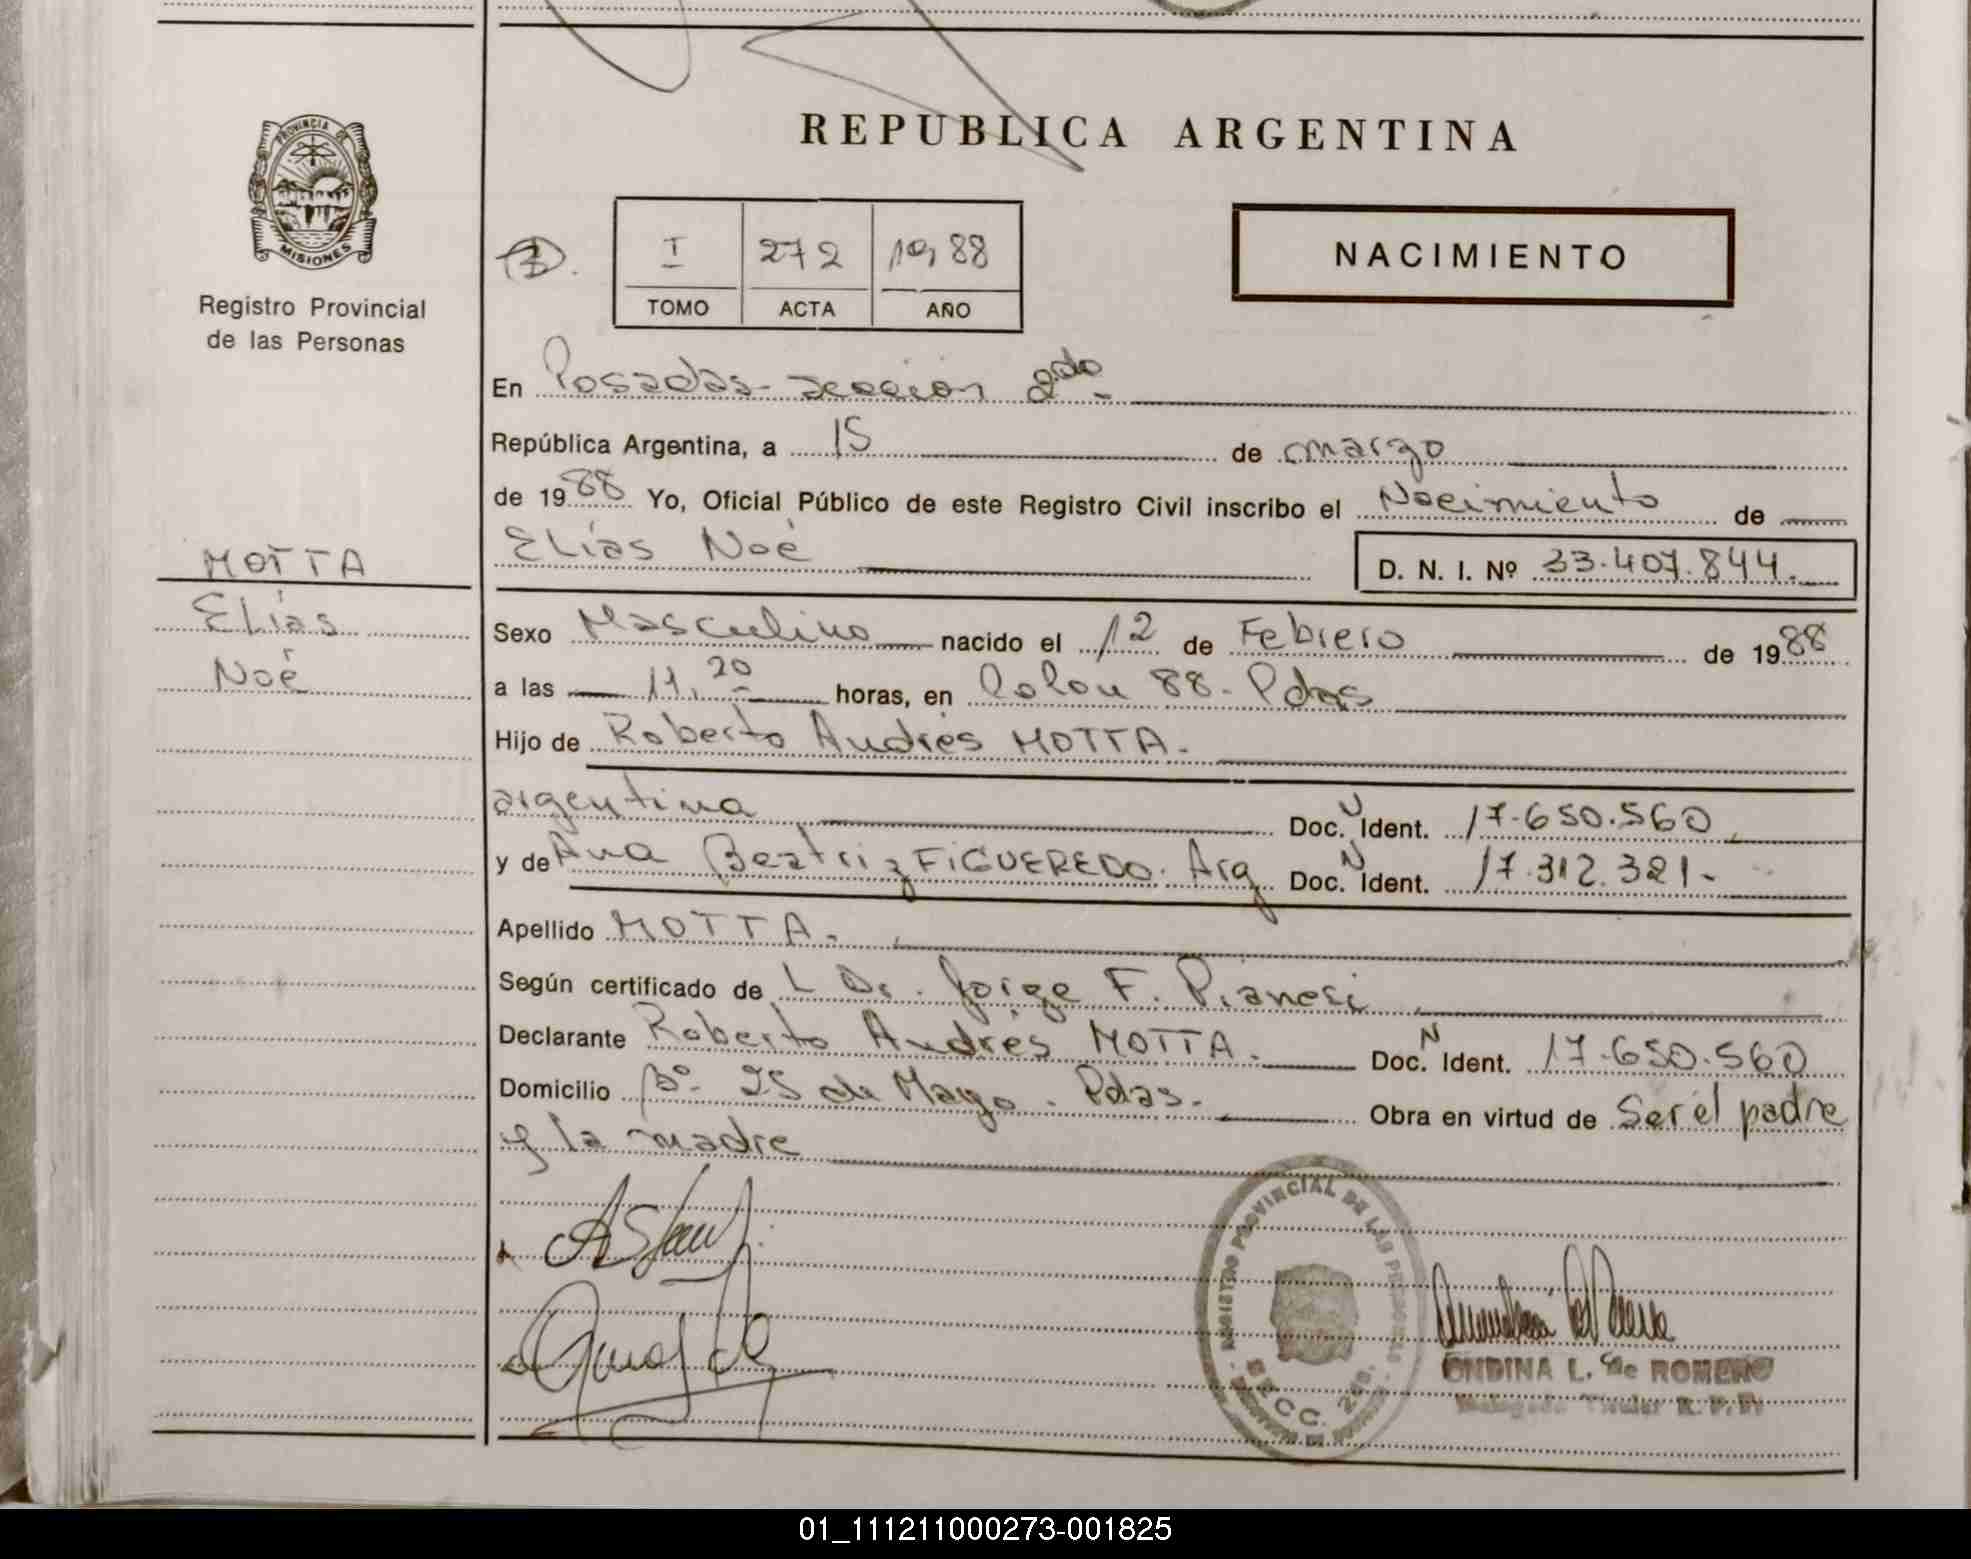 REPUBLICA ARGENTINA
PROVINCIA DE
MISIONES
Registro Provincial
de las Personas
I 272 1988
TOMO ACTA AÑO
NACIMIENTO
En Posadas - seccion 2da -
República Argentina, a 15 de marzo
de 1988 Yo, Oficial Público de este Registro Civil inscribo el Nacimiento de
Elías Noé
D. N. I. Nº 33.407.844.
MOTTA
Elías
Noé
Sexo Masculino nacido el 12 de Febrero de 1988
a las 11,20 horas, en Colon 88 - Pdas
Hijo de Roberto Andrés MOTTA.
argentina Doc. N Ident. 17.650.560
y de Ana Beatriz FIGUEREDO. Arg Doc. N Ident. 17.312.321-
Apellido MOTTA.
Según certificado de L Dr. Jorge F. Pianesi
Declarante Roberto Andrés MOTTA. Doc. N Ident. 17.650.560
Domicilio Bº 25 de Mayo. Pdas. Obra en virtud de Ser el padre
y la madre
REGISTRO PROVINCIAL DE LAS PERSONAS
SECC. 2da.
ONDINA L. de ROMERO
Delegada Titular R. P. P.
01_111211000273-001825